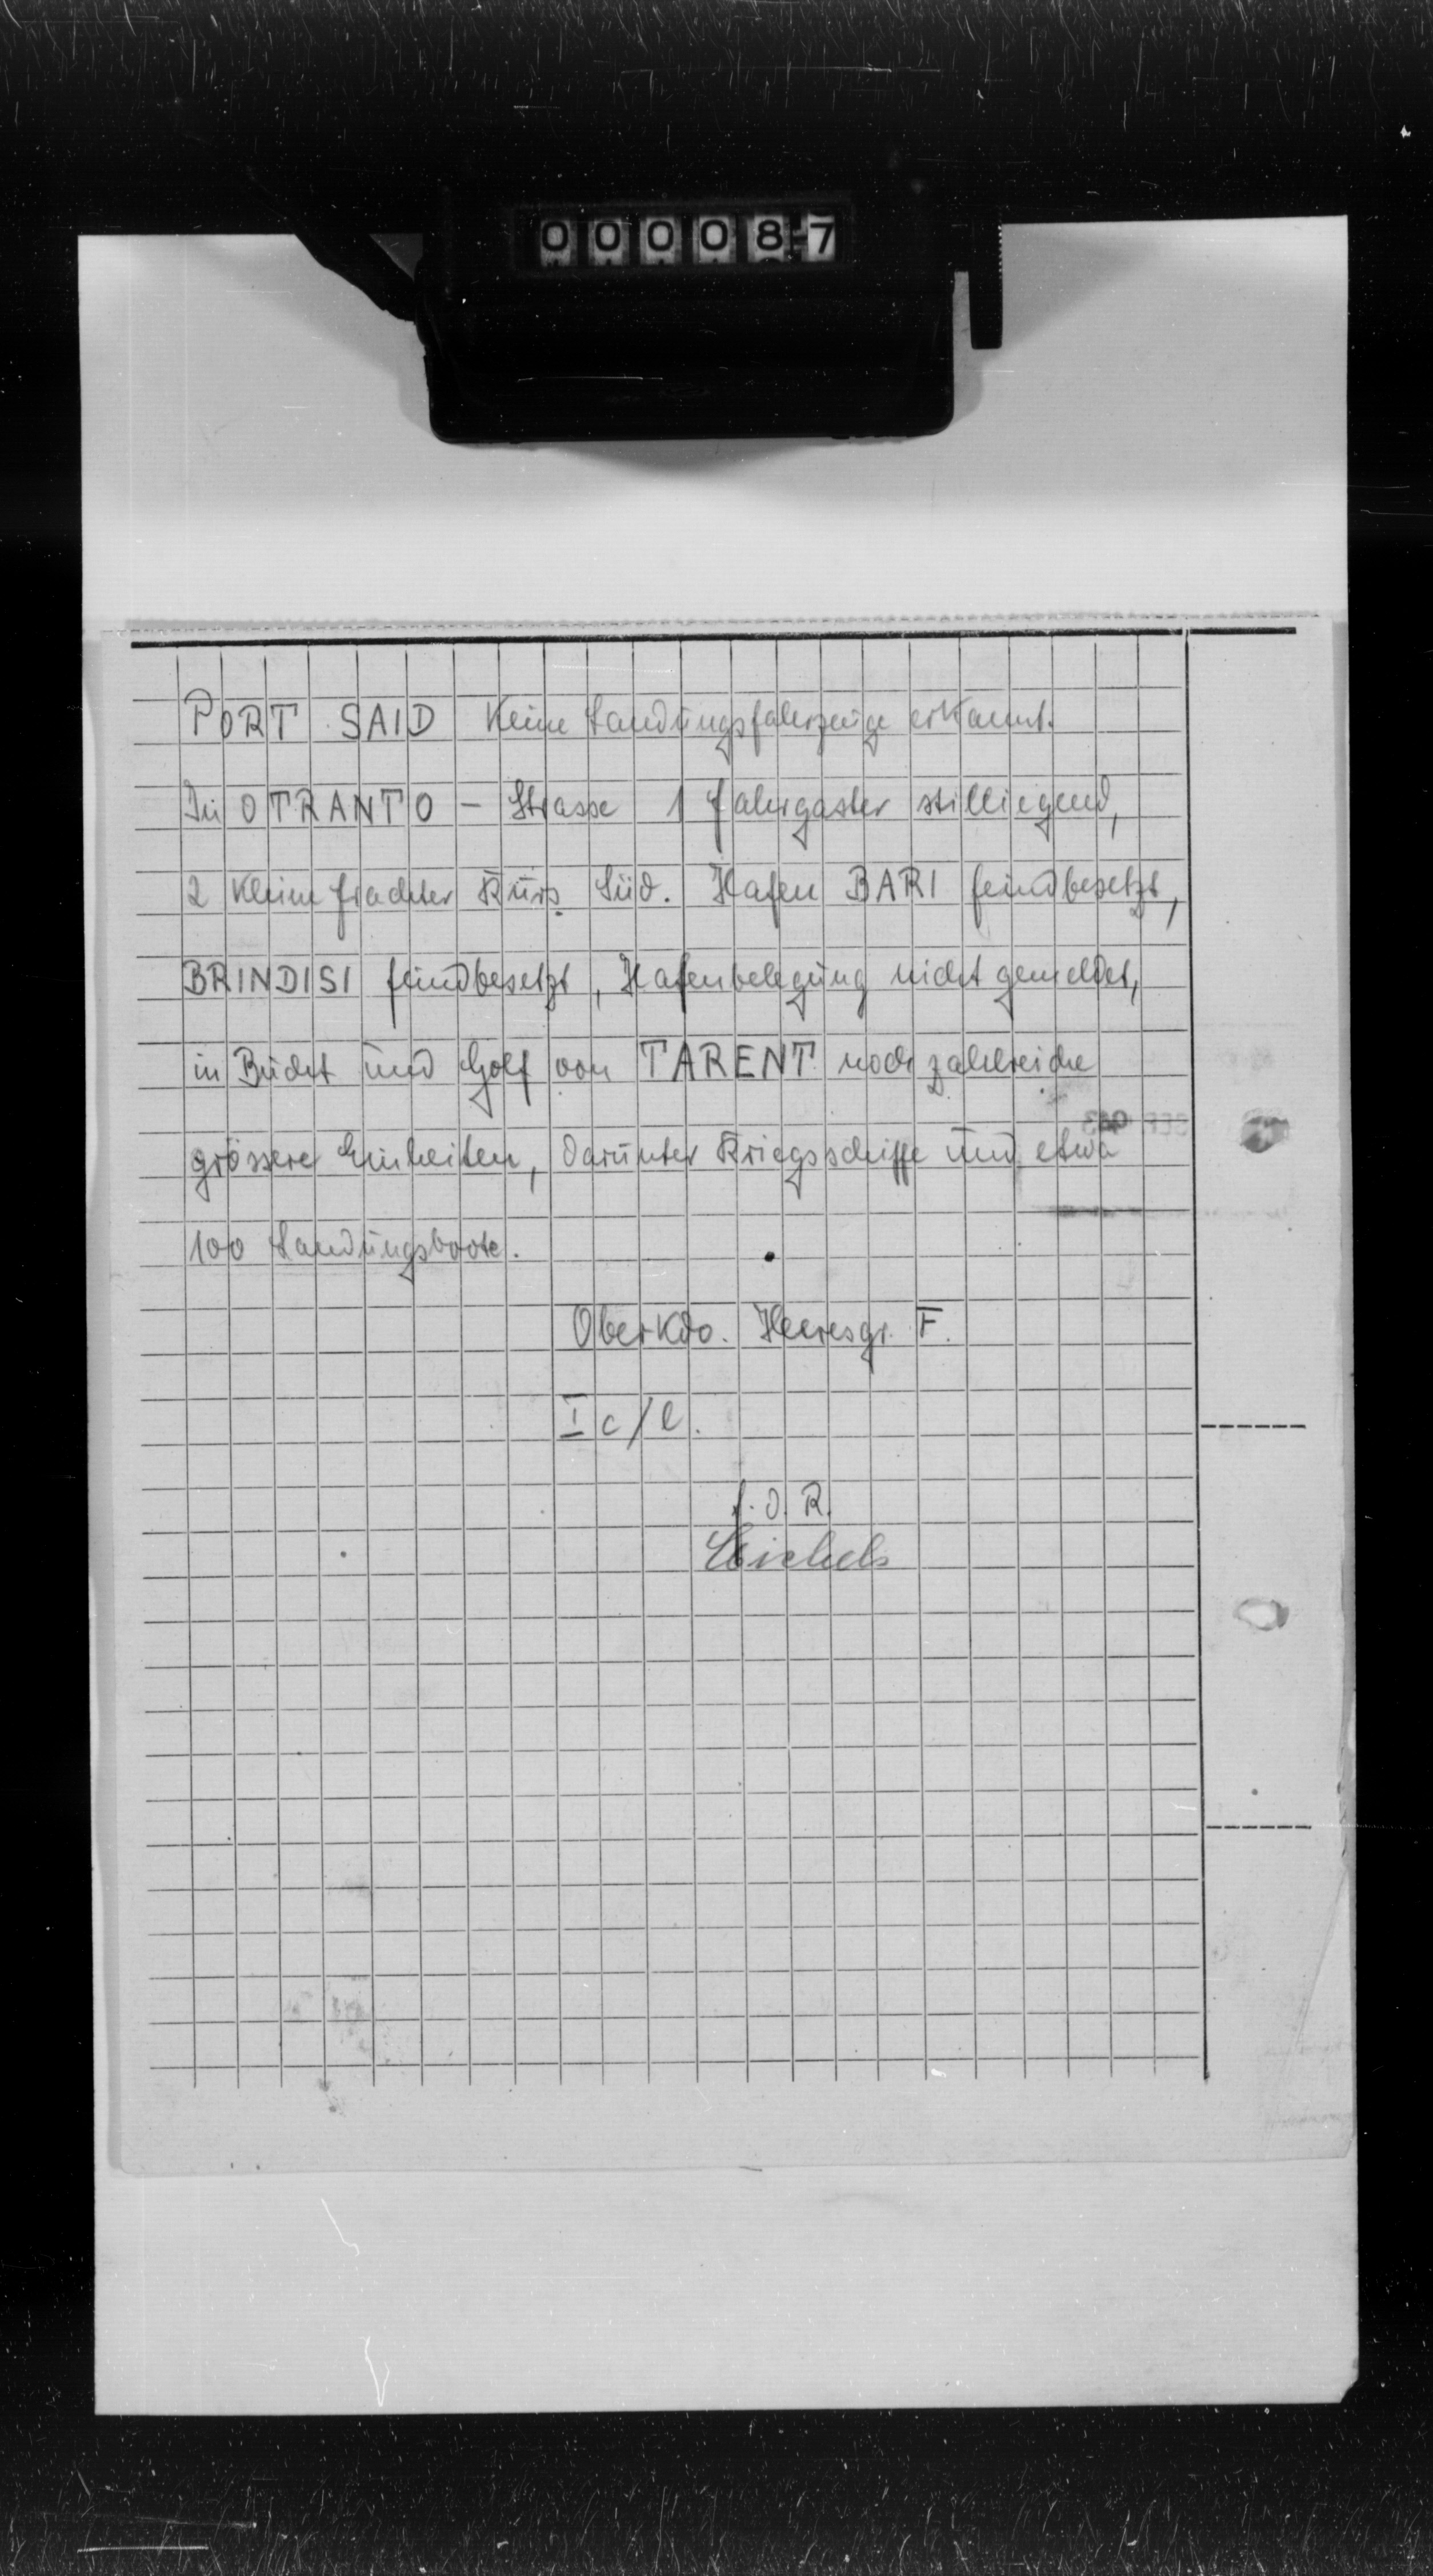 000087
PORT SAID Keine Landungsfahrzeuge erkannt.
In OTRANTO - Strasse 1 Fahrgaster stilliegend,
2 kleine Frachter Kurs Süd. Hafen BARI feindbesetzt,
BRINDISI feindbesetzt, Hafenbelegung nicht gemeldet,
in Bucht und Golf von TARENT noch zahlreiche
grössere Einheiten, darunter Kriegsschiffe und etwa
100 Landungsboote.
Oberkdo. Heeresgr. F.
I c/l.
f. d. R.